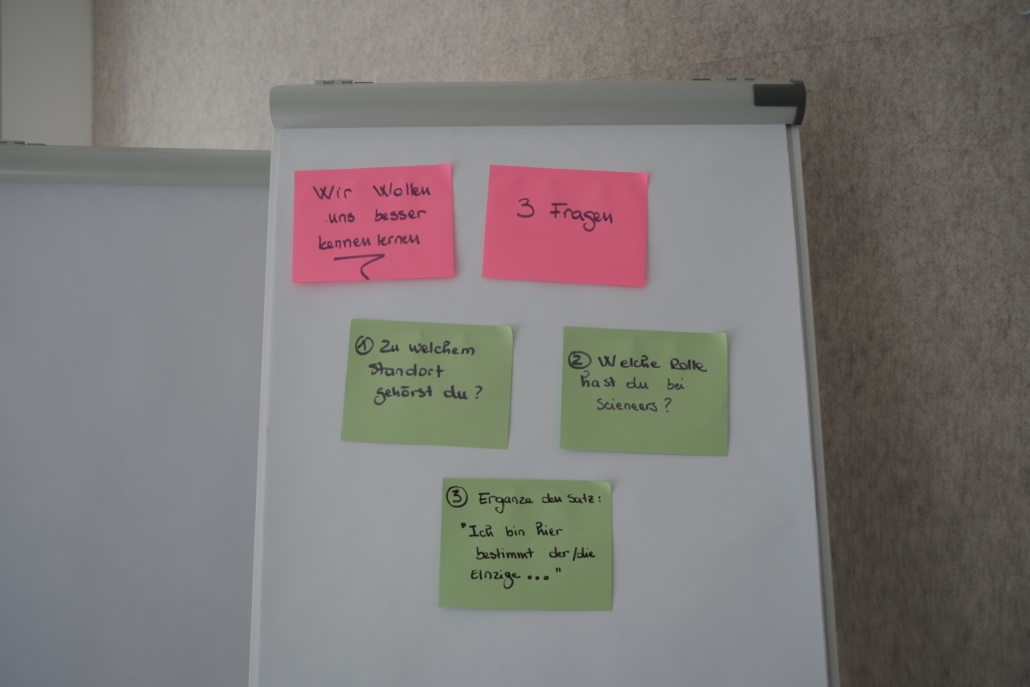 Wir Wollen
uns besser
kennen lernen
3 Fragen
① Zu welchem
Standort
gehörst du?
② Welche Rolle
hast du bei
Scieneers?
③ Ergänze den Satz:
"Ich bin hier
bestimmt der/die
Einzige..."